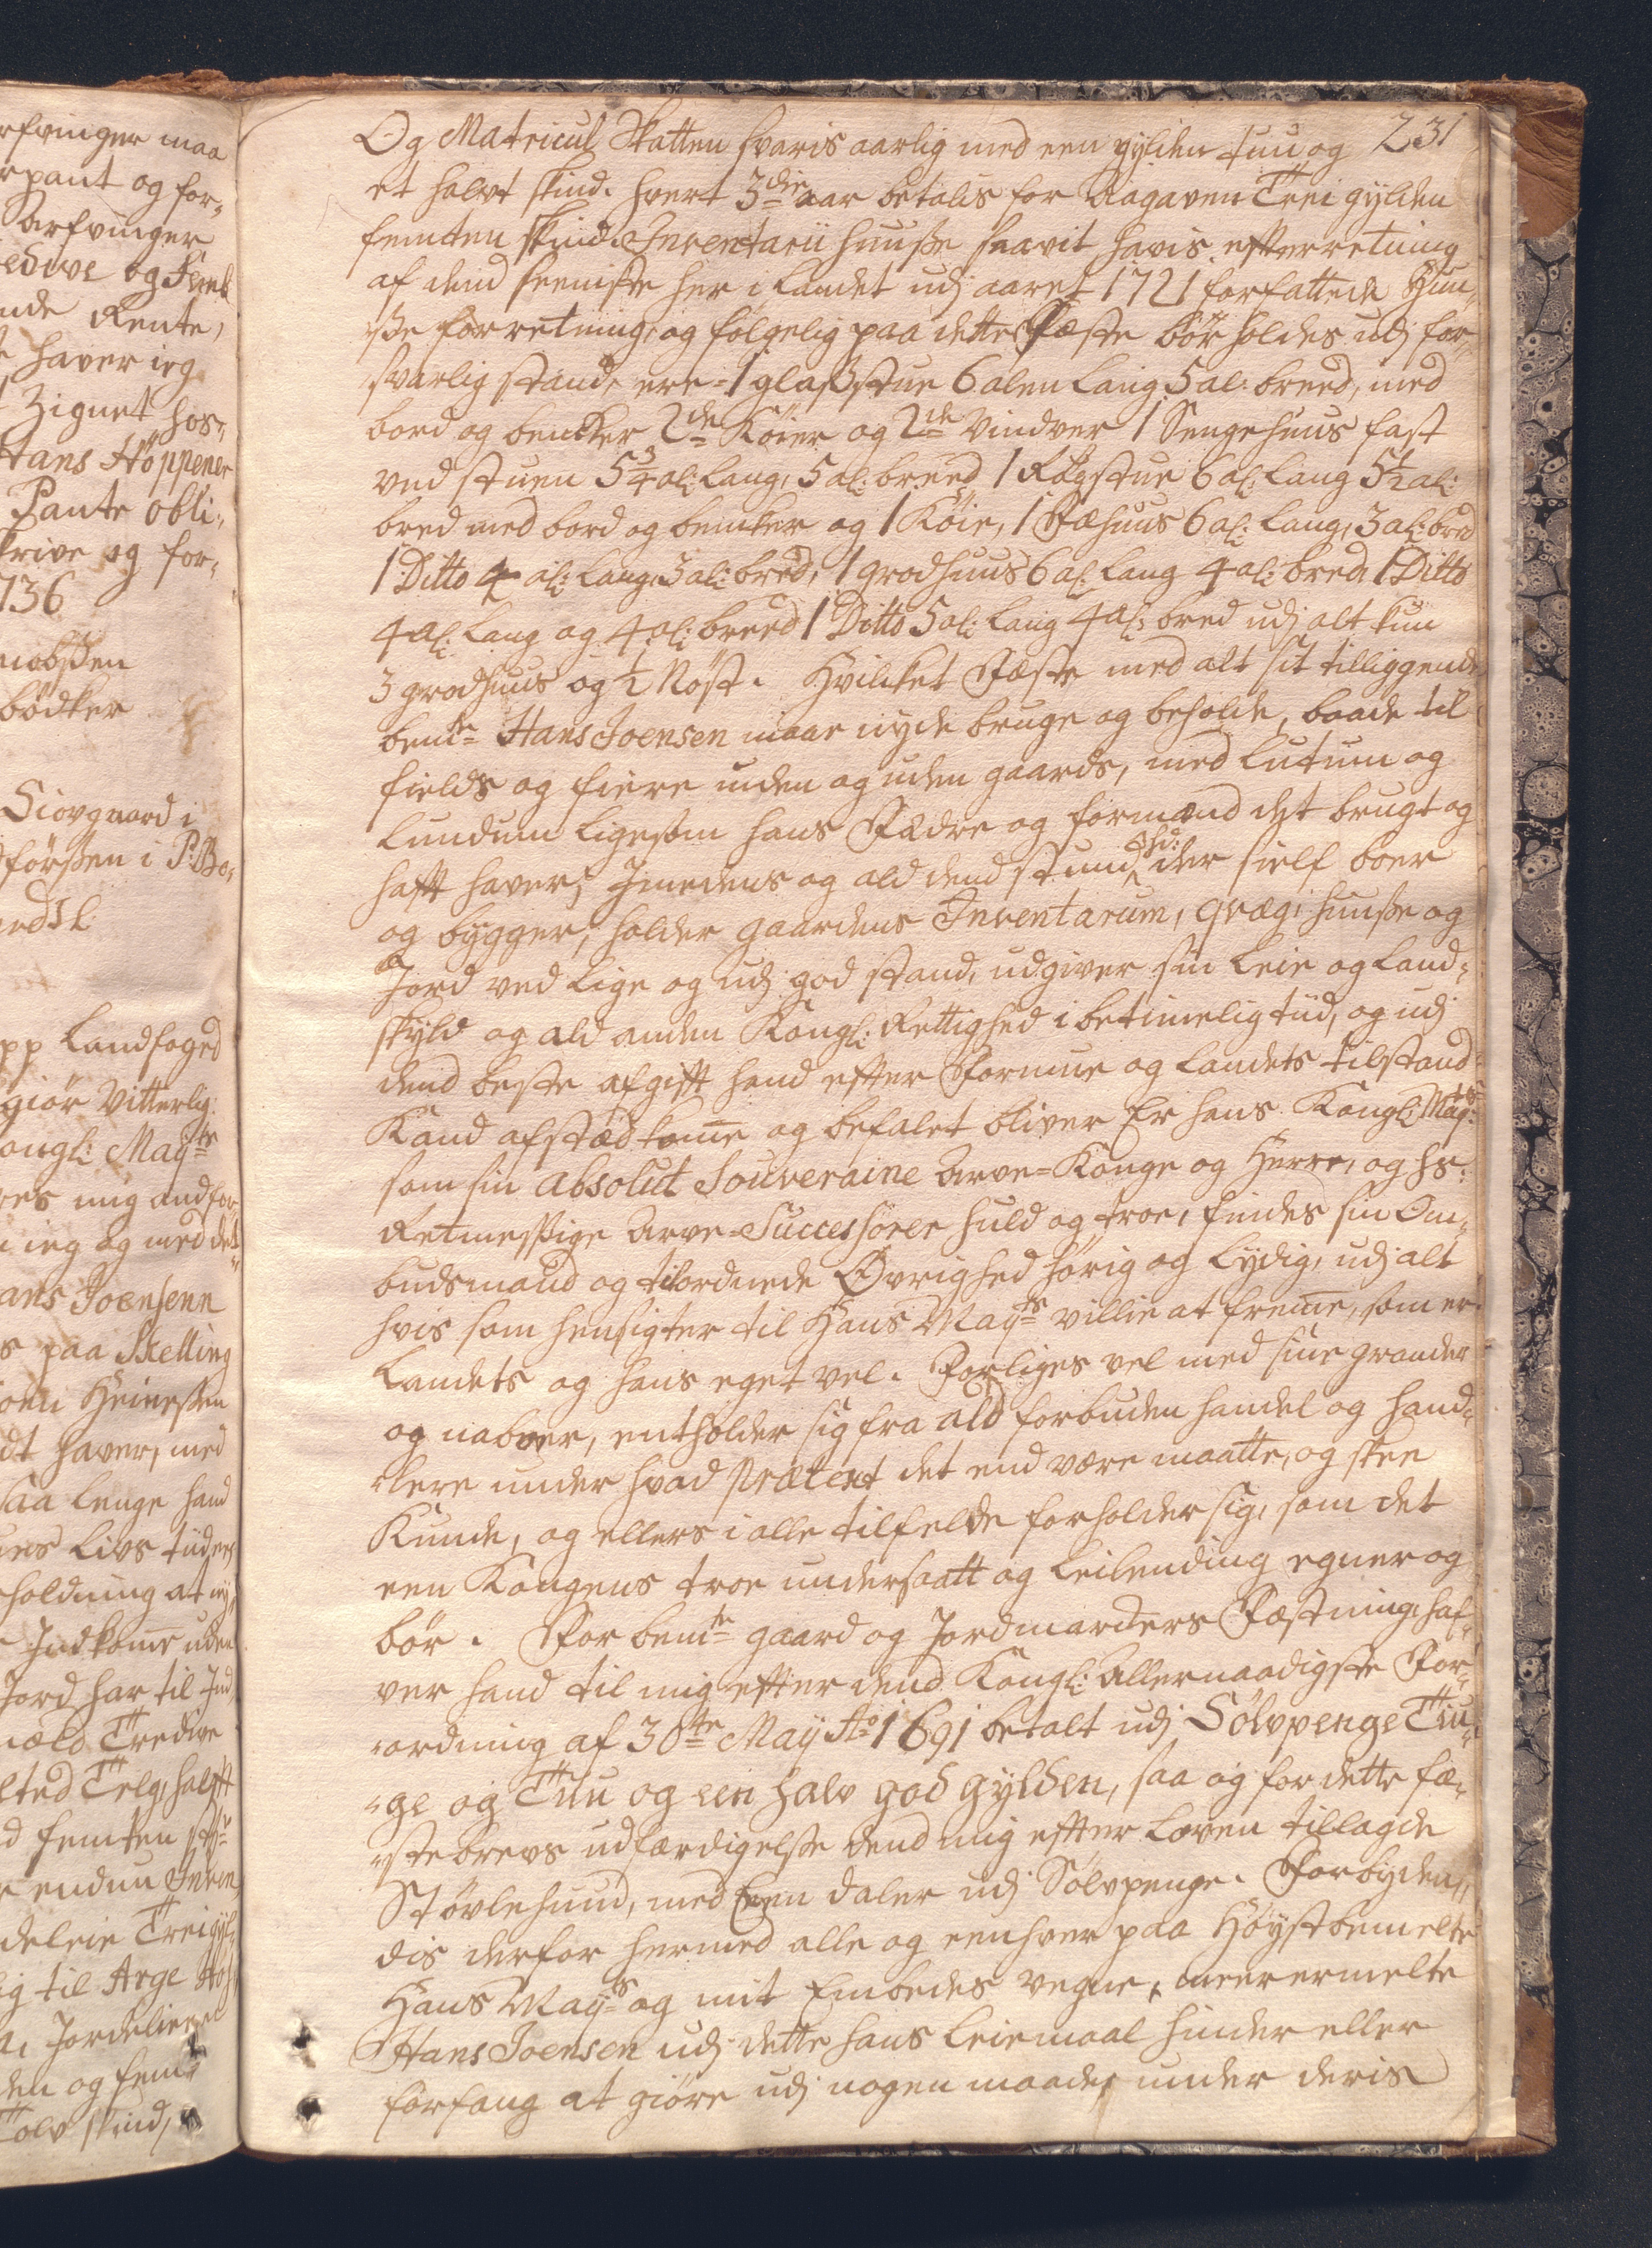 rfvinger maa
rpant og for-
Aarfvinger
edive og Femb
nde Rente,
haver ieg
Zignet hos-
Hans Höppener
Pante obli-
krive og for-
736
nobsen
bödker
Siovgaard i
förssen i P: Bo-
pp Landfoged
giör Vitterlig:
ongl: Mayts
res mig andfor
ieg og med det
ans Joensenn
s paa Skelling
oen Heinessen
dt haver, med
saa lenge hand
nes Livs tiider
holdning at ny
Indkome uden
Jord har til Ind
mæld Tredive
sted Telg, halfft
d femten
endnu Inven
deleie Trei gyl-
ig til Arge
Jordeleie
den og fem-
Tolv skind,
231
Og Matricul Skatten svaris aarlig med een gylden tuu og
et halvt skind. hvert 3die aar betalis for Aagaven Trei gylden
femten skind. Inventarii huusse saavit havis efterretning
af dend seeniste her i Landet udj aaret 1721 forfattede Huu-
sse forretning, og fölgelig paa dette Fæste bör holdes udj for-
svarlig stand, ere = 1 glasstue 6 alen lang 5 al: breed, med
bord og bencker 2de Köier og 2de Vindver 1 Sengehuus fast
ved stuen 5 3/4 al: lang, 5 al: breed 1 Rögstue 6 al: lang 5 1/2 al:
bred med bord og bencker og 1 Köie, 1 Fæhuus 6 al: lang, 3 al: bred
1 Ditto 4 al: lang, 3 al: bred, 1 grodhuus 6 al: lang 4 al: bred, 1 Ditto
4 al: lang og 4 al: breed 1 Ditto 5 al: lang 4 al: bred udj alt kun
3 grodhuus og 1/2 Nöst. Hvilket Fæste med alt sit tilliggende
bemte Hans Joensen maae nyde bruge og beholde, baade til
fields og fiere inden og uden gaards, med lutum og
Lundum ligesom hans Fædre og formænd det brugt og
hafft haver, Imedens og ald dend stund hd: der sielf boer
og bygger, holder gaardens Inventarum, qvæg, huusse og
Jord ved lige og udj god stand, udgiver sin Leie og Land-
skyld og ald anden Kongl: Rettighed i betimelig tiid, og udj
dend beste afgifft hand efter Formue og Landets tilstand
Kand afstæd kome og befalet bliver Er hans Kongl: Mayts:
som sin absolut Souveraine Arve-Konge og Herre, og hs:
Retmessige Arve-Successorer huld og troe, findes sin Om-
budsmand og tilordnede Övrighed hörig og Lydig, udj alt
hvis som hensigter til Hans Mayts villie at freme, som er
Landets og hans eget vel. Forliges vel med sine grander
og naboer, entholder sig fra ald forbuden handel og hand-
lere under hvad prætext det end være maatte, og skee
Kunde, og ellers i alle tilfelde forholder sig, som det
een Kongens troe undersaatt og Leilending egner og
bör. For bemte gaard og Jordmarckers Fæstning haf-
ver hand til mig efter dend Kongl: Allernaadigste For-
ordning af 30te May Ao 1691 betalt udj Sölvpenge Tiu-
ge og Tuu og een halv god gylden, saa og for dette fæ-
stebrevs udfærdigelse dend mig efter Loven tillagde
Stövlehund, med Een daler udj Sölvpenge. Forbyden-
dis derfor hermed alle og eenhver paa Höystbemelte
Hans Mayts og mit Embedes vegne, meerermelte
Hans Joensen udj dette hans Leiemaal hinder eller
forfang at giöre udj nogen maade, under deris